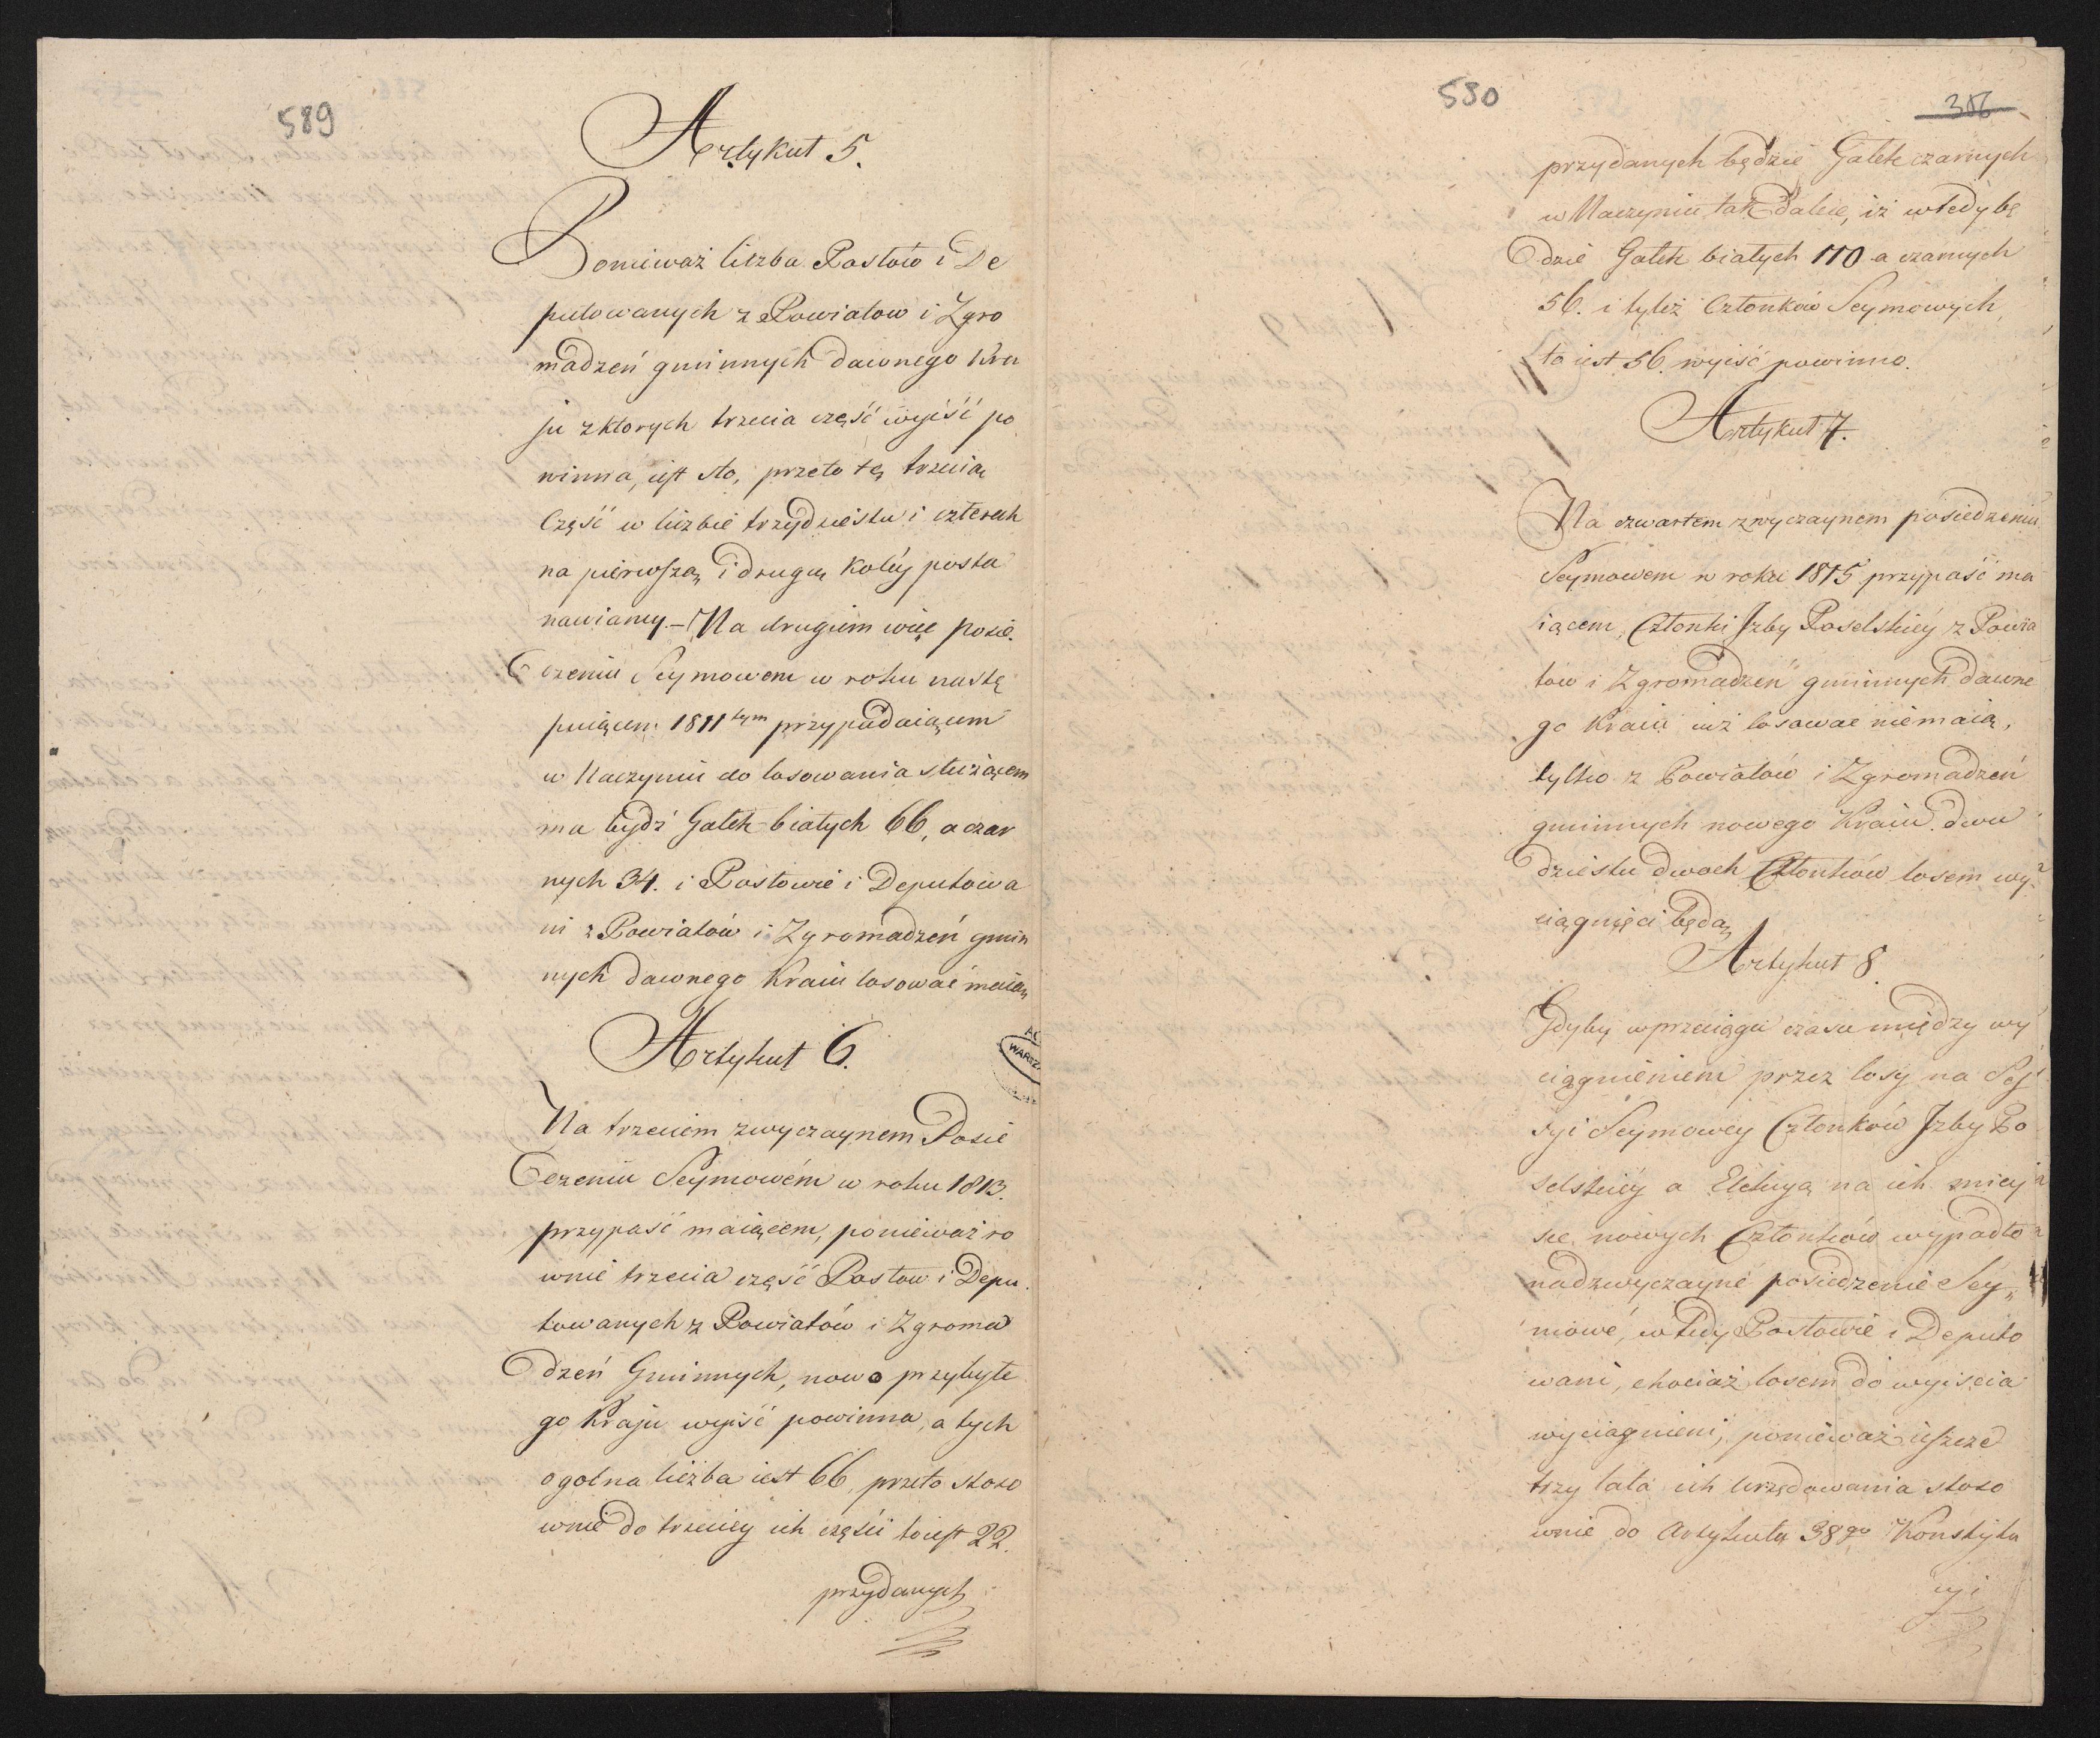 589
Artykuł 5.
Ponieważ liczba Posłow i De
putowanych z Powiatow i Zgro
madzeń gminnych dawnego Kra
ju z ktorych trzecia część wyiść po
winna, iest sto, przeto tę trzecią
Część w liczbie trzydziestu i czterech
na pierwszą i drugą koléy posta
nawiamy. – Na drugiem więc posie
dzeniu Seymowem w roku nastę
puiącem 1811tym przypadaiącem
w Naczyniu do losowania służącem
ma bydź Gałek białych 66, a czar
nych 34. i Posłowie i Deputowa
ni z Powiatów i Zgromadzeń gmin
nych dawnego Kraiu losować maią
Artykuł 6.
Na trzeciem zwyczaynem Posie
dzeniu Seymowém w roku 1813.
przypaść maiącem, ponieważ ro
wnie trzecia część Posłow i Depu
towanych z Powiatów i Zgroma
dzeń Gminnych, nowo przybyłe
go Kraju wyiść powinna, a tych
ogolna liczba iest 66, przeto stoso
wnie do trzeciey ich części to iest 22.
przydanych
530
356
przydanych będzie Gałek czarnych
w Naczyniu tak dalece, iż wtedy bę
dzie Gałek białych 110 a czarnych
56. i tyleż Członków Seymowych,
to iest 56. wyiść powinno.
Artykuł 7.
Na czwartem zwyczaynem posiedzeniu
Seymowem w roku 1815 przypaść ma
iącem, Członki Jzby Poselskiéy z Powia
tow i Zgromadzeń gminnych dawne
go Kraiu iuż losować nie maią,
tylko z Powiatów i Zgromadzeń
gminnych nowego Kraiu. dwu
dziestu dwoch Członków losem wy
ciągnięci będą
Artykuł 8.
Gdyby w przeciągu czasu między wy
ciągnieniem przez losy na Ses
syi Seymowey Członków Jzby Po
selskiéy a Elekcyą na ich miey
sce nowych Członków wypadło
nadzwyczayne posiedzenie Sey„
mowe, wtedy Posłowie i Deputo
wani, chociaż losem do wyiscia
wyciągnieni, ponieważ ieszcze
trzy lata ich urzędowania stoso
wnie do Artykułu 38go Konstytu
cyi